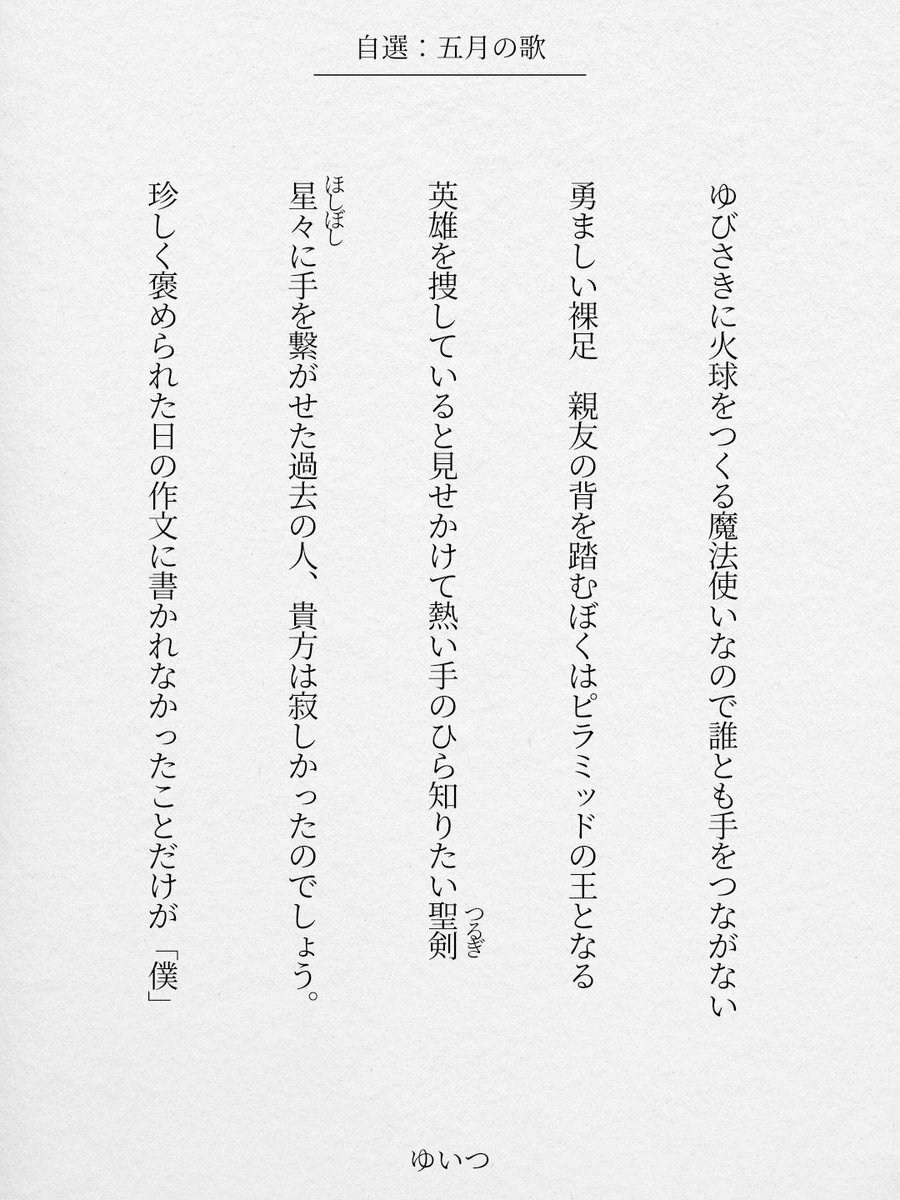 自選：五月の歌
ゆびさきに火球をつくる魔法使いなので誰とも手をつながない
勇ましい裸足　親友の背を踏むぼくはピラミッドの王となる
英雄を捜していると見せかけて熱い手のひら知りたい聖剣
つるぎ
星々に手を繋がせた過去の人、貴方は寂しかったのでしょう。
ほしぼし
珍しく褒められた日の作文に書かれなかったことだけが「僕」
ゆいつ